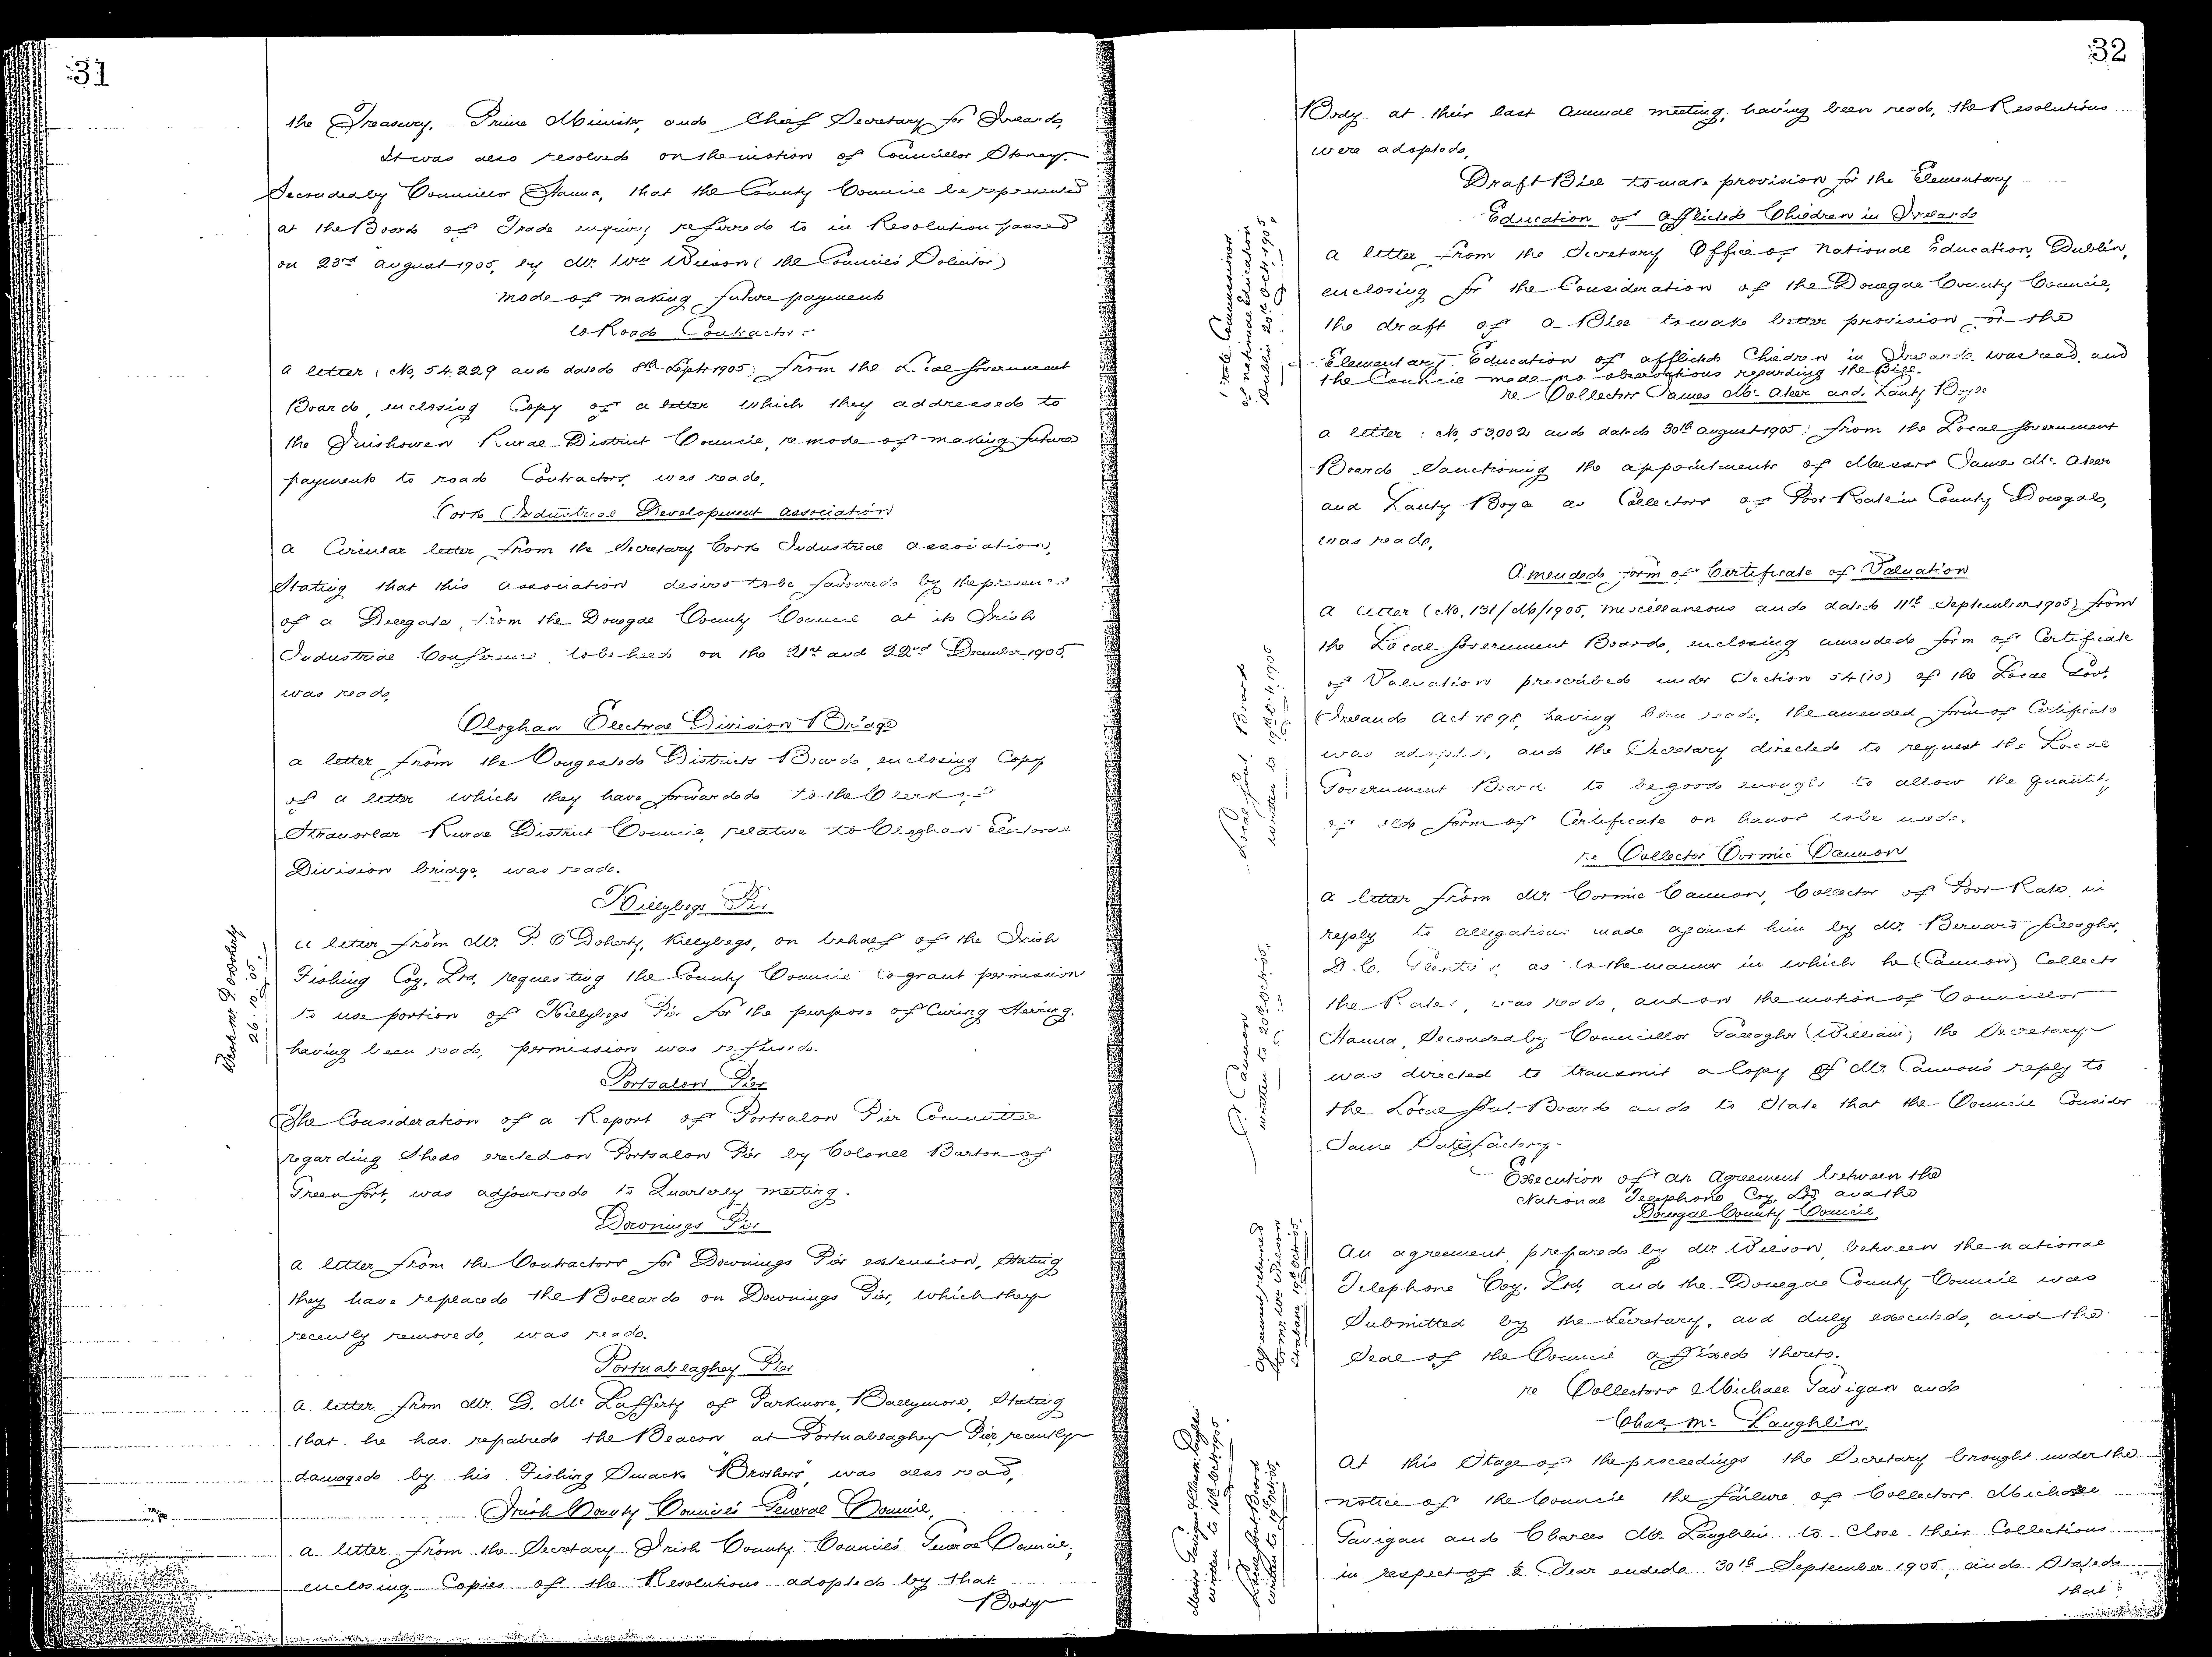 31
the Treasury, Prime Minister, and Chief Secretary for Ireland,
It was also resolved on the motion of Councillor Storey
Seconded by Councillor Hanna, that the County Council be represented
at the Board of Trade enquiry referred to in Resolution passed
on 23rd August 1905, by Mr. Wm Wilson (the Council's Solicitor)
Mode of making future payments
to Road Contractors
A letter (No, 54,229 and dated 8th Sept 1905) from the Local Government
Board, enclosing Copy of a letter which they addressed to
the Inishowen Rural District Council, re mode of making future
payments to road Contractors, was read,
Cork Industrial Development Association
A Circular letter from the Secretary Cork Industrial Association,
Stating that this Association desires to be favoured by the presence
of a Delegate, from the Donegal County Council at its Irish
Industrial Conference, to be held on the 21st and 22nd December 1905,
was read,
Cloghan Electoral Division Bridge
A letter from the Congested Districts Board, enclosing Copy
of a letter which they have forwarded to the Clerk of
Stranorlar Rural District Council, relative to Cloghan Electoral
Division bridge, was read.
Killybegs Pier
Wrote Mr. P. O'Doherty
26.10.05.
A letter from Mr. P. O'Doherty, Killybegs, on behalf of the Irish
Fishing Coy. Ltd, requesting the County Council to grant permission
to use portion of Killybegs Pier for the purpose of Curing Herring.
having been read, permission was refused.
Portsalon Pier
The Consideration of a Report of Portsalon Pier Committee
regarding Sheds erected on Portsalon Pier by Colonel Barton of
Greenfort, was adjourned to Quarterly meeting.
Downings Pier
A letter from the Contractors for Downings Pier extension, Stating
they have replaced the Bollards on Downings Pier, which they
recently removed, was read.
Portnablaghey Pier
A letter from Mr. D. Mc Lafferty of Parkmore, Ballymore, Stating
that he has repaired the Beacon at Portnablaghey Pier, recently
damaged by his Fishing Smack "Brothers", was also read,
Irish County Councils General Council,
A letter from the Secretary Irish County Councils General Council,
enclosing Copies of the Resolutions adopted by that
Body
32
Body at their last Annual meeting, having been read, the Resolutions
were adopted,
Draft Bill to make provision for the Elementary
Education of Afflicted Children in Ireland
Commissioners
of National Education
Dublin 20th Oct. 1905,
A letter from the Secretary Office of National Education, Dublin,
enclosing for the Consideration of the Donegal County Council,
the draft of a Bill to make better provision for the
Elementary Education of afflicted Children in Ireland was read, and
the Council made no observations regarding the Bill.
re Collectors James Mc Ateer and Lanty Boyce
A letter (No, 53,002 and dated 30th August 1905) from the Local Government
Board Sanctioning the appointments of Messrs James Mc Ateer
and Lanty Boyce as Collectors of Poor Rate in County Donegal,
was read,
Amended form of Certificate of Valuation
Local Govt. Board
written to 19th Oct. 1905
A letter (No, 131/M/1905, Miscellaneous and dated 11th September 1905) from
the Local Government Board, enclosing amended form of Certificate
of Valuation prescribed under Section 54 (10) of the Local Govt.
(Ireland) Act 1898, having been read, the amended form of Certificate
was adopted, and the Secretary directed to request the Local
Government Board to be good enough to allow the quantity
of old form of Certificate on hand to be used.
re Collector Cormic Cannon
C. Cannon
written to 20th Oct. 05.
A letter from Mr. Cormic Cannon, Collector of Poor Rate, in
reply to allegations made against him by Mr. Bernard Gallagher,
D.C. Glenties, as to the manner in which he (Cannon) Collects
the Rates, was read, and on the motion of Councillor
Hanna, Seconded by Councillor Gallagher (William) the Secretary
was directed to transmit a Copy of Mr. Cannon's reply to
the Local Govt. Board and to State that the Council Consider
Same Satisfactory.
Execution of an Agreement between the
National Telephone Coy. Ltd and the
Donegal County Council,
Agreement returned
to Mr. Wm. Wilson
Strabane 19th Oct. 05.
An agreement, prepared by Mr Wilson, between the National
Telephone Coy. Ltd, and the Donegal County Council was
Submitted by the Secretary, and duly executed, and the
Seal of the Council affixed thereto.
re Collectors Michael Gavigan and
Chas Mc Laughlin.
Messrs Gavigan & Mc Laughlin
written to 16th Oct. 1905.
Local Govt Board
written to 19th Oct. 05.
At this Stage of the proceedings the Secretary brought under the
notice of the Council the failure of Collectors Michael
Gavigan and Charles Mc Laughlin to Close their Collections
in respect of ½ Year ended 30th September 1905, and Stated
that